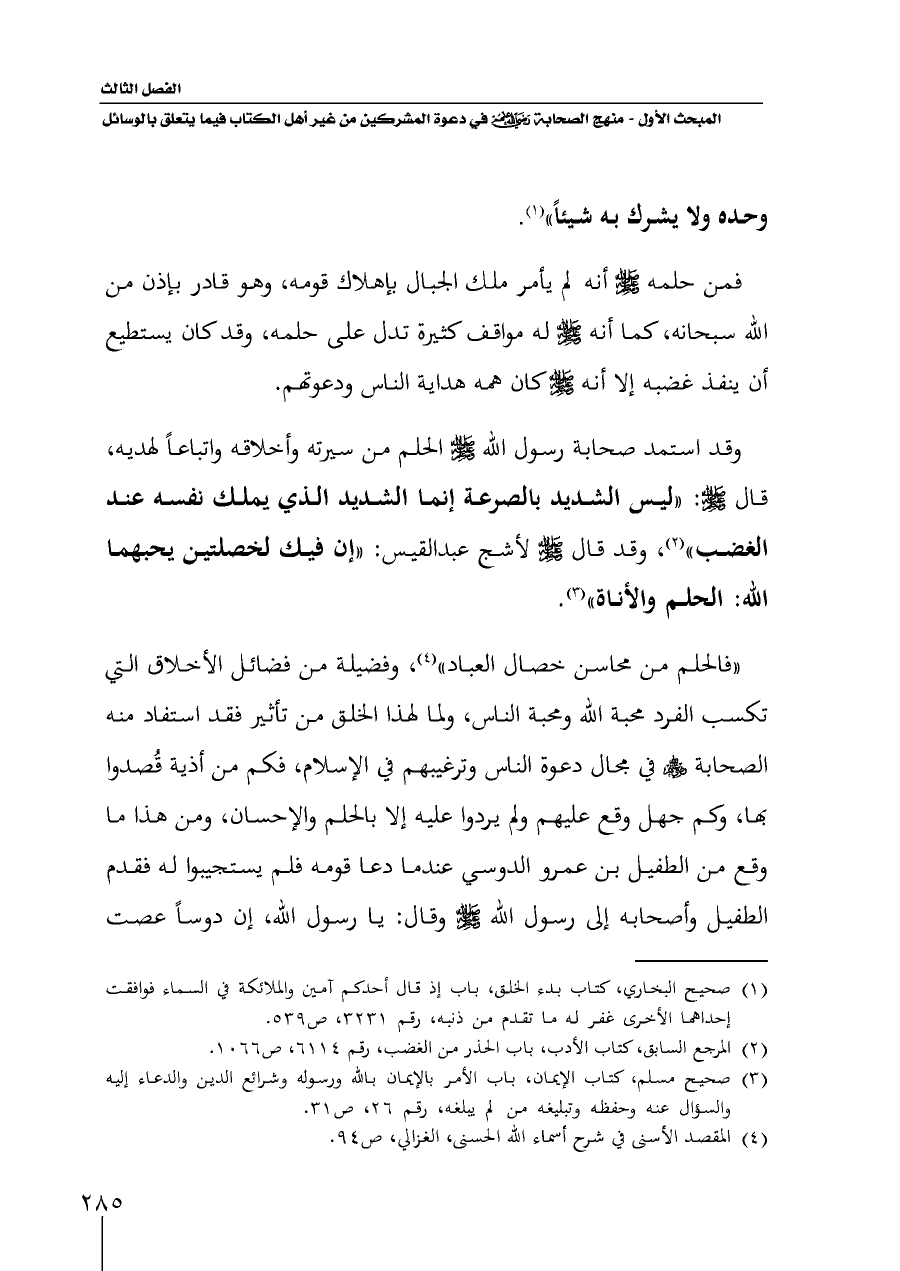 الفصل الثالث
المبحث الأول - منهج الصحابة رضي الله عنهم في دعوة المشركين من غير أهل الكتاب فيما يتعلق بالوسائل
وحده ولا يشرك به شيئاً»(١).
فمن حلمه ﷺ أنه لم يأمر ملك الجبال بإهلاك قومه، وهو قادر بإذن من
الله سبحانه، كما أنه ﷺ له مواقف كثيرة تدل على حلمه، وقد كان يستطيع
أن ينفذ غضبه إلا أنه ﷺ كان همه هداية الناس ودعوتهم.
وقد استمد صحابة رسول الله ﷺ الحلم من سيرته وأخلاقه واتباعاً لهديه،
قال ﷺ: «ليس الشديد بالصرعة إنما الشديد الذي يملك نفسه عند
الغضب»(٢)، وقد قال ﷺ لأشج عبدالقيس: «إن فيك لخصلتين يحبهما
الله: الحلم والأناة»(٣).
«فالحلم من محاسن خصال العباد»(٤)، وفضيلة من فضائل الأخلاق التي
تكسب الفرد محبة الله ومحبة الناس، ولما لهذا الخلق من تأثير فقد استفاد منه
الصحابة ﷺ في مجال دعوة الناس وترغيبهم في الإسلام، فكم من أذية قُصدوا
بها، وكم جهل وقع عليهم ولم يردوا عليه إلا بالحلم والإحسان، ومن هذا ما
وقع من الطفيل بن عمرو الدوسي عندما دعا قومه فلم يستجيبوا له فقدم
الطفيل وأصحابه إلى رسول الله ﷺ وقال: يا رسول الله، إن دوساً عصت
(١) صحيح البخاري، كتاب بدء الخلق، باب إذ قال أحدكم آمين والملائكة في السماء فوافقت
إحداهما الأخرى غفر له ما تقدم من ذنبه، رقم ٣٢٣١، ص٥٣٩.
(٢) المرجع السابق، كتاب الأدب، باب الحذر من الغضب، رقم ٦١١٤، ص١٠٦٦.
(٣) صحيح مسلم، كتاب الإيمان، باب الأمر بالإيمان بالله ورسوله وشرائع الدين والدعاء إليه
والسؤال عنه وحفظه وتبليغه من لم يبلغه، رقم ٢٦، ص٣١.
(٤) المقصد الأسنى في شرح أسماء الله الحسنى، الغزالي، ص٩٤.
٢٨٥